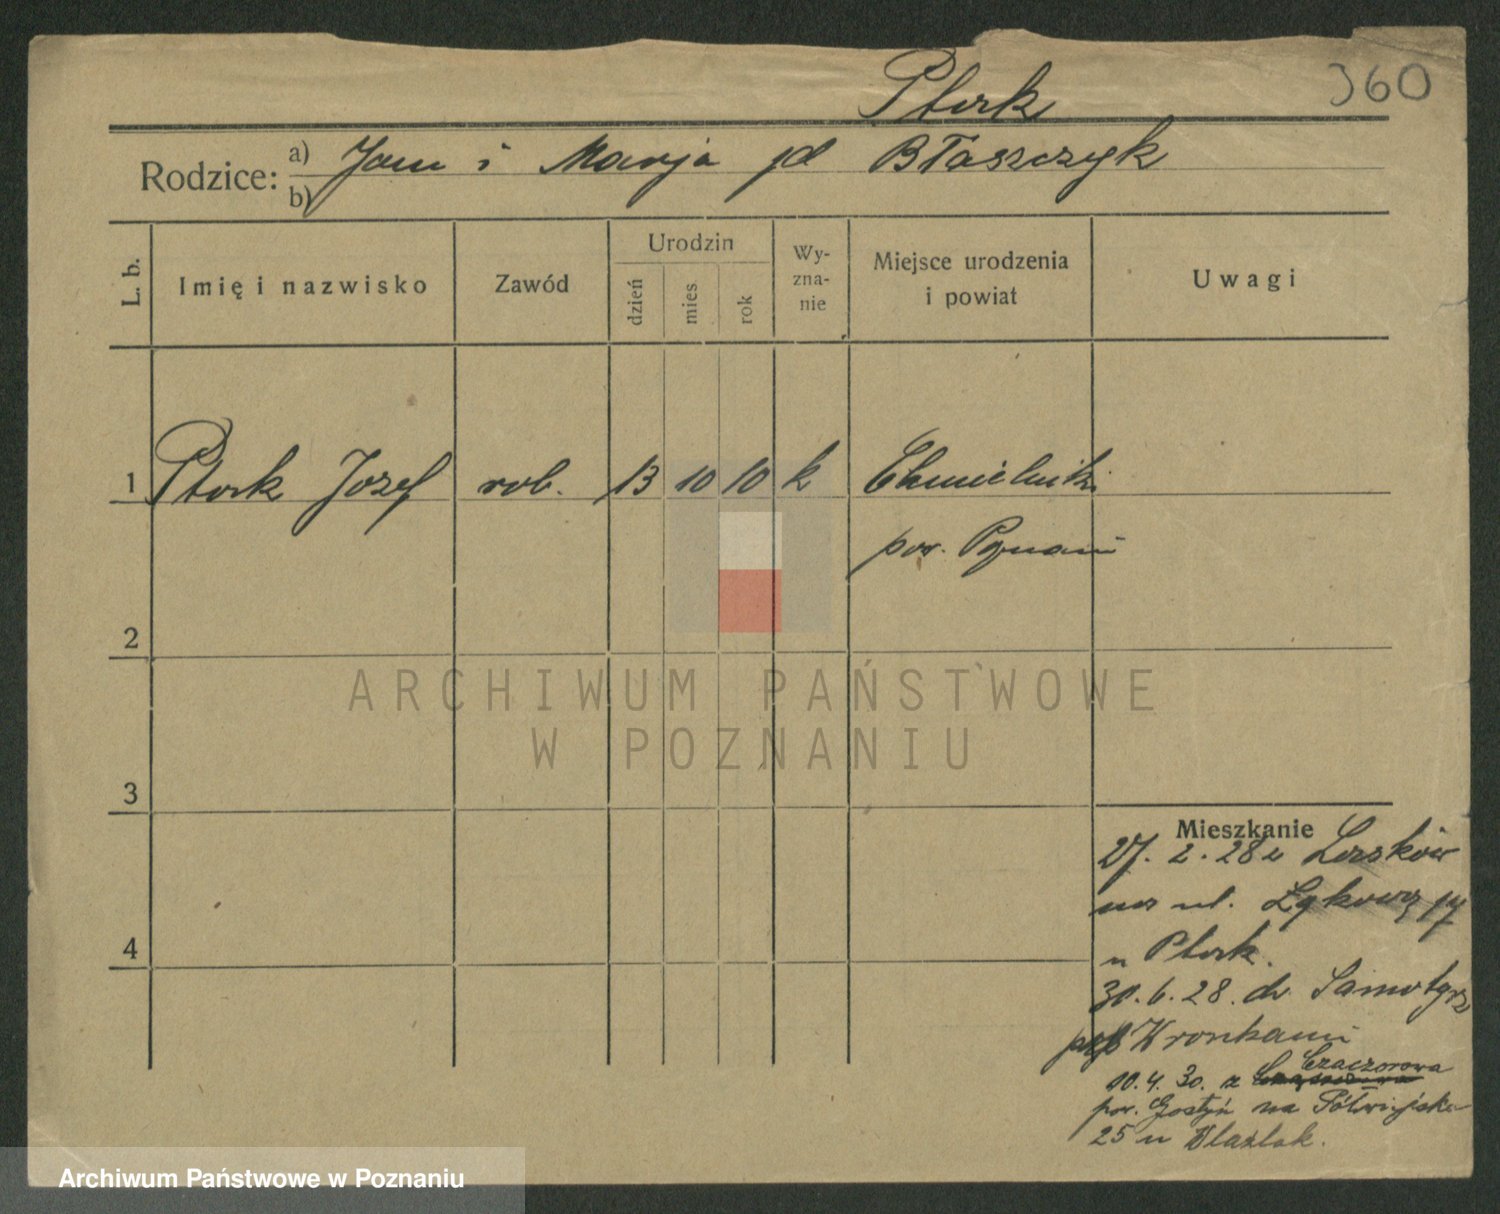 360
Ptork
Rodzice: a) Jan i Marja pd Błaszczyk
b)
L. b.
Imię i nazwisko
Zawód
Urodzin
dzień
mies
rok
Wy-
zna-
nie
Miejsce urodzenia
i powiat
Uwagi
1 Ptork Józef rob. 13 10 10 k Chmielniki
pow. Poznań
2
3
4
Mieszkanie
27. 2. 28 z
na ul. Łąkową 17
u Ptork.
30. 6. 28. do
Wronkami
10. 4. 30. z Czaczorowa
pow. Gostyń na Półwiejska
25 u Wlaźlak.
ARCHIWUM PAŃSTWOWE
W POZNANIU
Archiwum Państwowe w Poznaniu